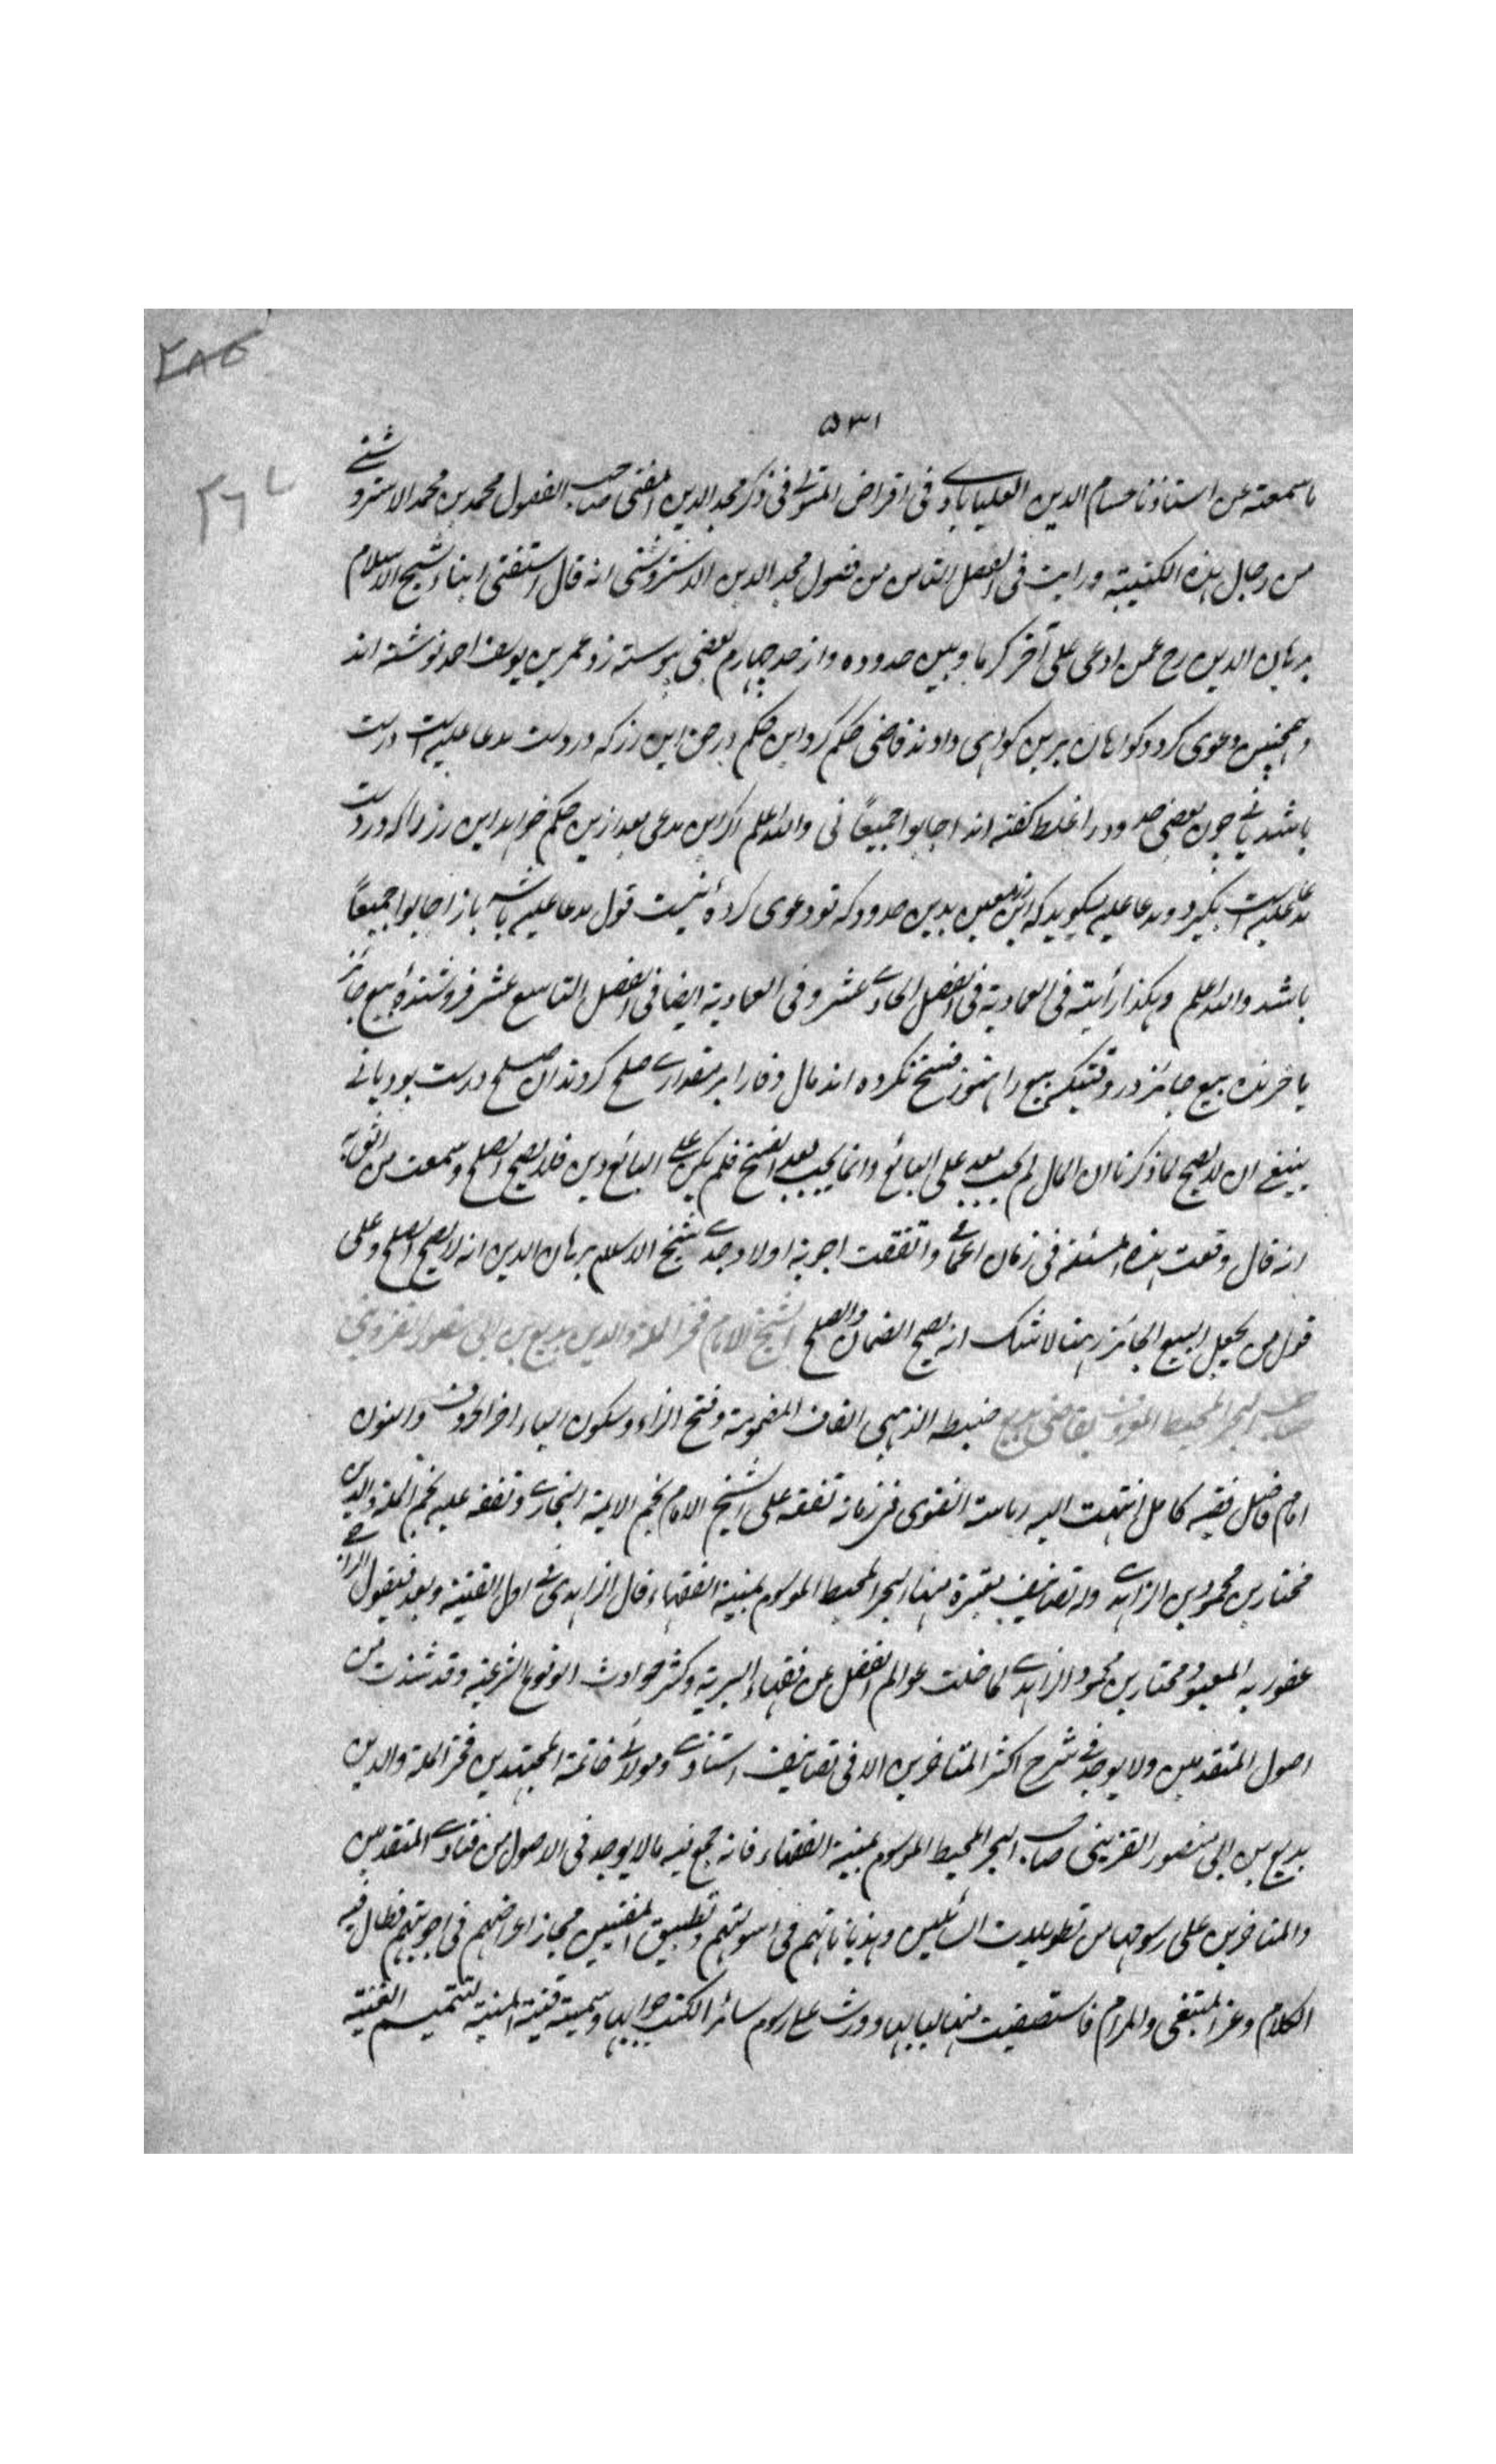 ٢٨٥
٥٣١
٢٦٧
ما سمعته عن استاذنا حسام الدين العليابادي في اقراض المتولي في ذكر مجد الدين المفتي صاحب الفصول محمد بن محمد الاستروشني
من رجال هذه الكتيبة ورايت في الفصل الثامن من فصول مجد الدين الاستروشني انه قال استفتى ابناء شيخ الاسلام
برهان الدين رح عمن ادعى على آخر كرما وبين حدوده واز حد چهارم بعضى پيوسته رز عمر بن يوسف احمد نوشته اند
وهمچنين دعوى كرد وكواهان برين كواهى دادند قاضى حكم كرد اين حكم در حق اين رز كه در دست مدعا عليه است درست
باشد يانے چون بعضى حدود را غلط كفته اند اجابوا جميعاً نى والله اعلم اكر اين مدعى بعد ازين حكم خواهد اين رز را كه در دست
مدعا عليه است بكيرد ومدعا عليه ميكويد كه اين رز معين بدين حدود كه تو دعوى كردهٔ نيست قول مدعا عليه باشد باز اجابوا جميعاً
باشد والله اعلم وهكذا رأيته في العمادية في الفصل الحادي عشر وفي العمادية ايضا في الفصل التاسع عشر فروشندهٔ بيع جائز
با خرنده بيع جائز در وقتيكه بيع را هنوز فسخ نكرده اند مال وفا را بر مقدارے صلح كردند آن صلح درست بود يانے
ينبغي ان لا يصح لما ذكرنا ان المال لم يجب بعد على البائع وانما يجب بعد الفسخ فلم يكن على البائع دين فلا يصح الصلح وسمعت من اثق به
انه قال وقعت هذه المسئلة في زمان اعمامي واتفقت اجوبة اولاد جدي شيخ الاسلام برهان الدين انه لا يصح الصلح وعلى
قول من يجعل البيع الجائز رهنا لا شك انه يصح الضمان والصلح الشيخ الامام فخر الملة والدين بديع بن ابي منصور القزويني
صاحب البحر المحيط المعروف بقاضي بديع ضبطه الذهبي القاف المضمومة وفتح الزاء وسكون الياء آخر الحروف والنون
امام فاضل فقيه كامل انتهت اليه رياسة الفتوى في زمانه تفقه على الشيخ الامام نجم الايمة البخاري وتفقه عليه نجم الملة والدين
مختار بن محمود بن الزاهدي وله تصانيف معتبرة منها البحر المحيط الموسوم بمنية الفقهاء قال الزاهدي في اول القنية وبعد فيقول الراجي
عفو ربه المعبود مختار بن محمود الزاهدي لما خلت عوالم الفضل عن فقهاء البرية وكثر حوادث الوقوع الشرعية وقد شذت من
اصول المتقدمين ولا يوجد في شرح اكثر المتاخرين الا في تصانيف استاذي ومولاي خاتمة المجتهدين فخر الملة والدين
بديع بن ابي منصور القزيني صاحب البحر المحيط الموسوم بمنية الفقهاء فانه جمع فيه ما لا يوجد في الاصول من فتاوى المتقدمين
والمتاخرين على رسومها من تطويلات السائلين وهذياناتهم في اسولتهم وتطبيق المفتيين مجاز اعراضهم في اجوبتهم فطال فيه
الكلام وعز المبتغى والمرام فاستصفيت منها لبابها ووردت على رسوم سائر الكتب جوابها وسميته قنية المنية لتتميم الغنية